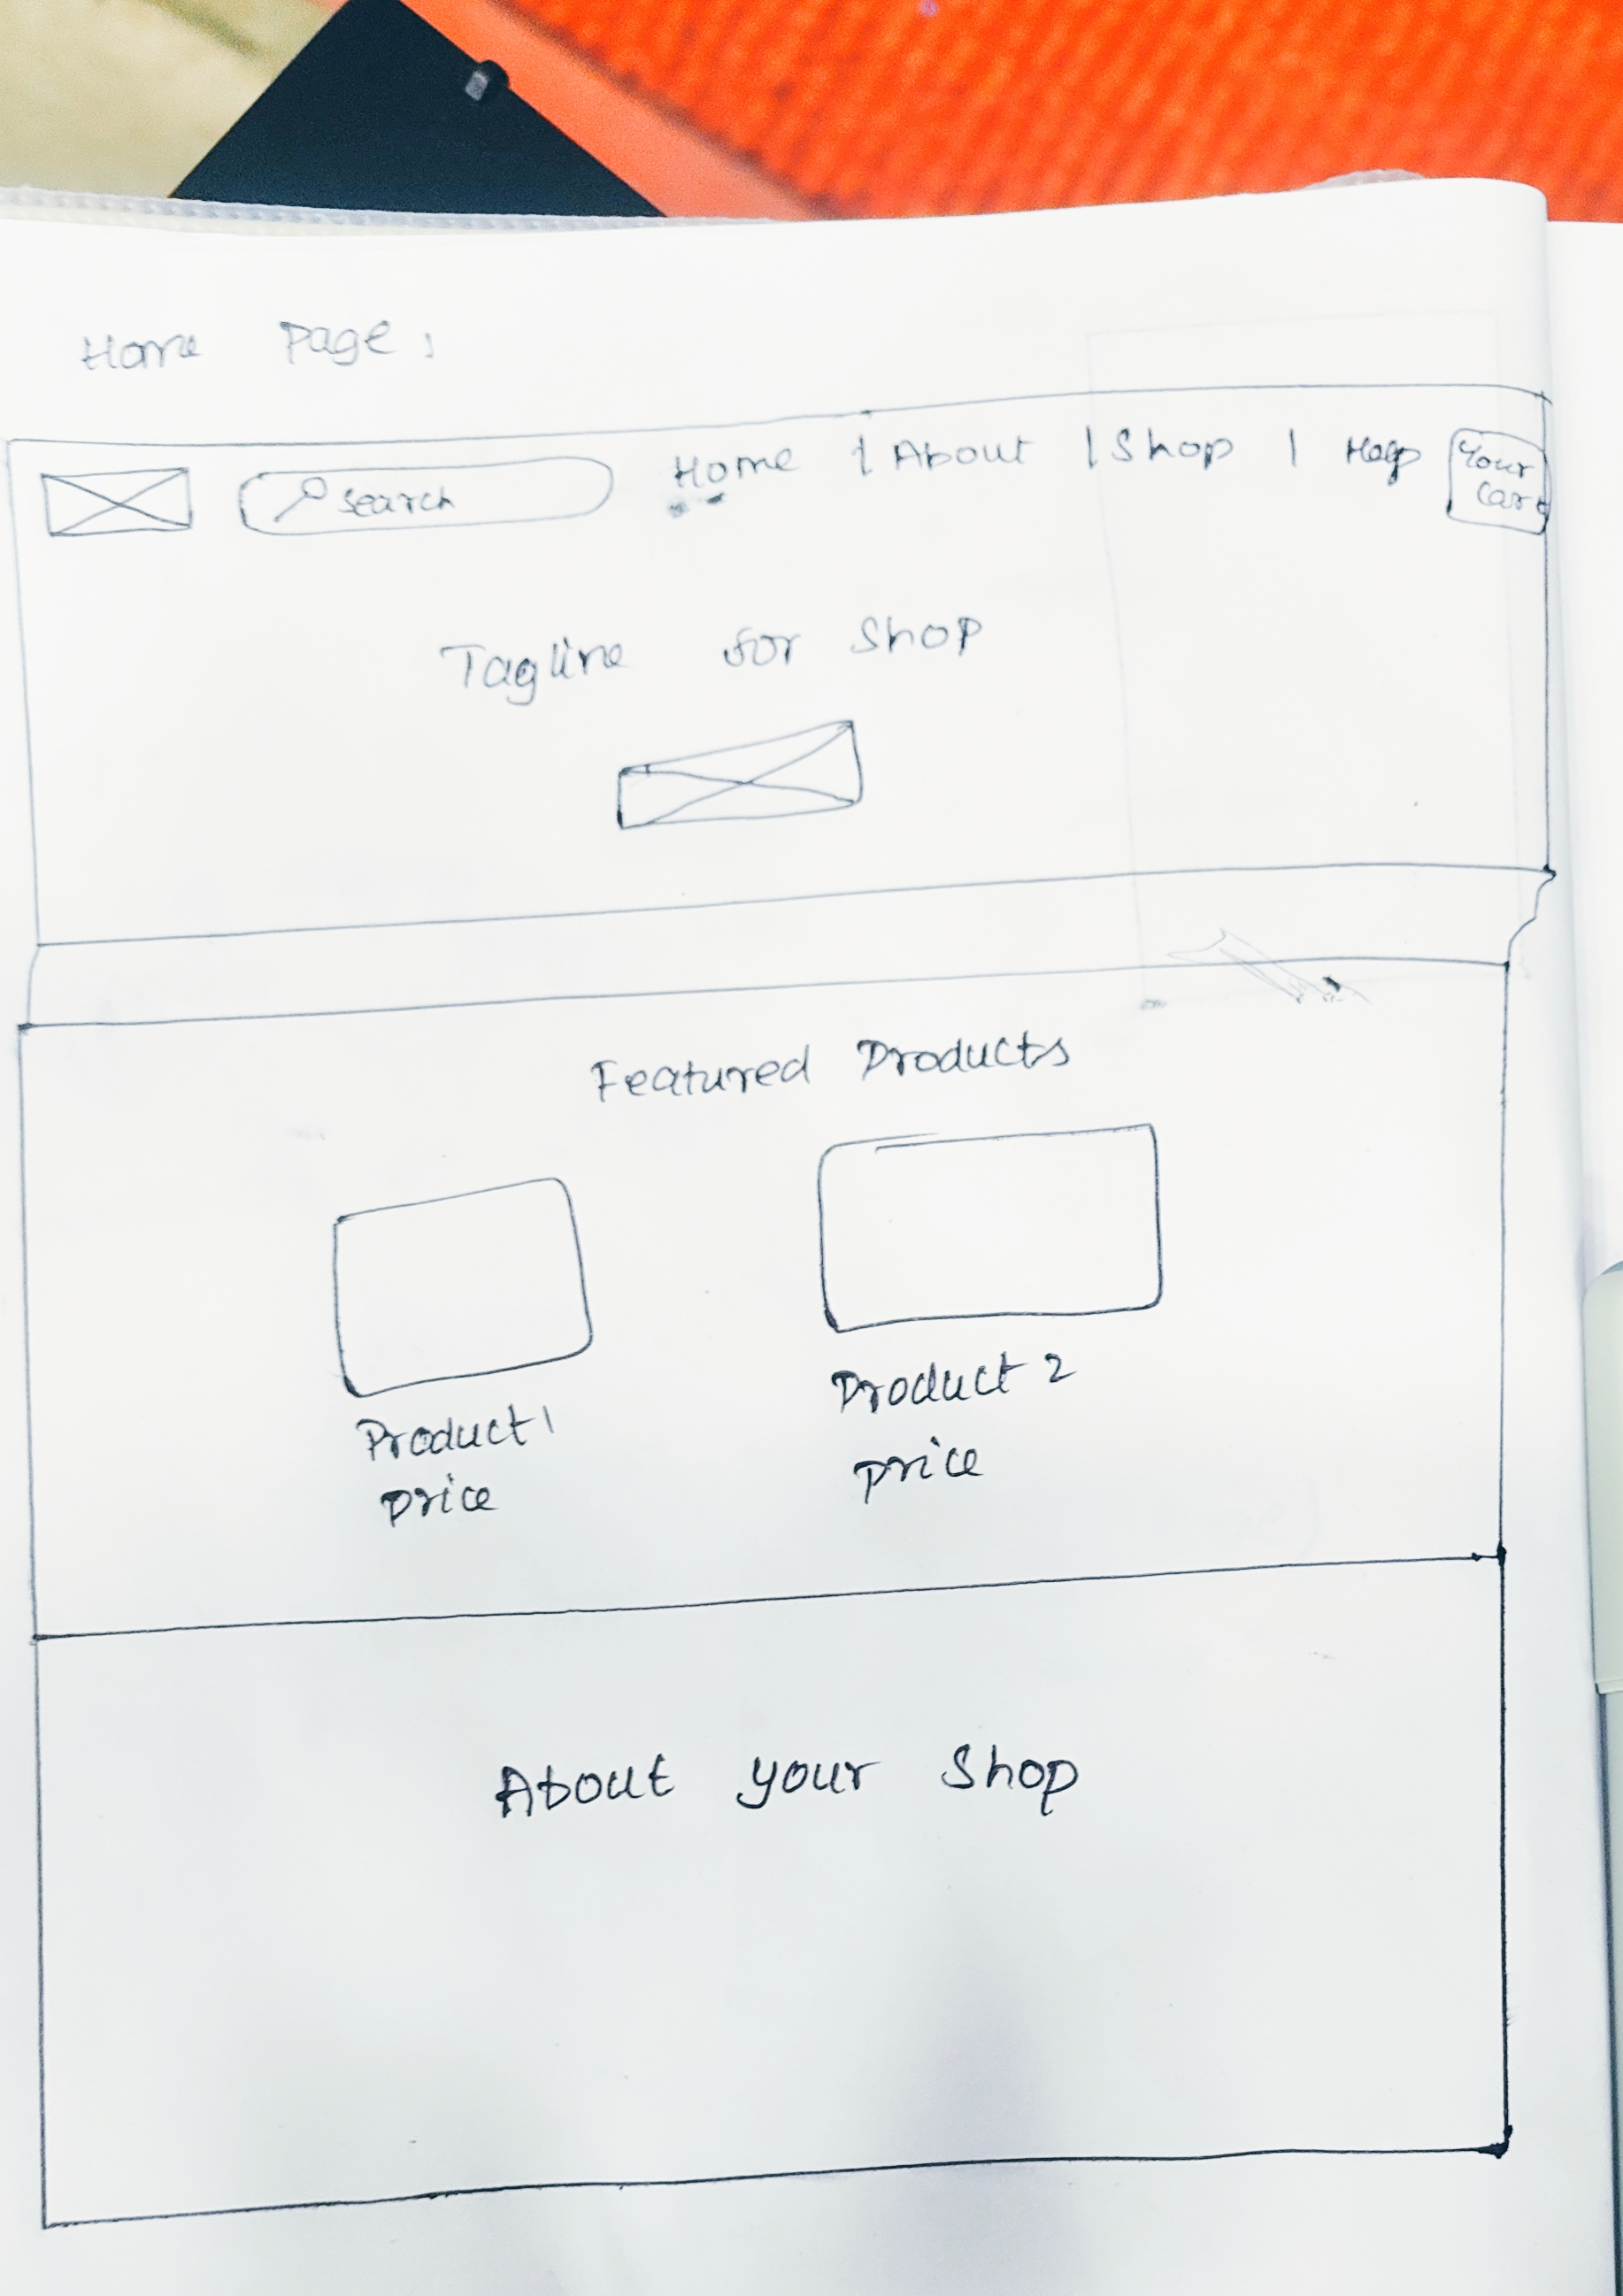 Home Page:
search Home | About | Shop | Help Your
Cart
Tagline for Shop
Featured Products
Product 1
price
Product 2
price
About your Shop